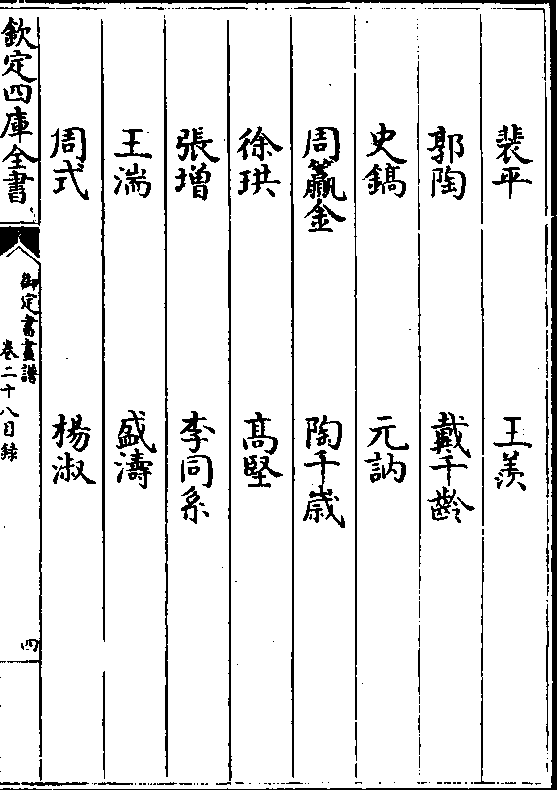 裴平　王羨
郭陶　戴千齡
史鎬　元訥
周籯金　陶千歳
徐珙　髙堅
張增　李同系
王湍　盛濤
周式　楊淑
欽定四庫全書
御定書畫譜
卷二十八目錄
四